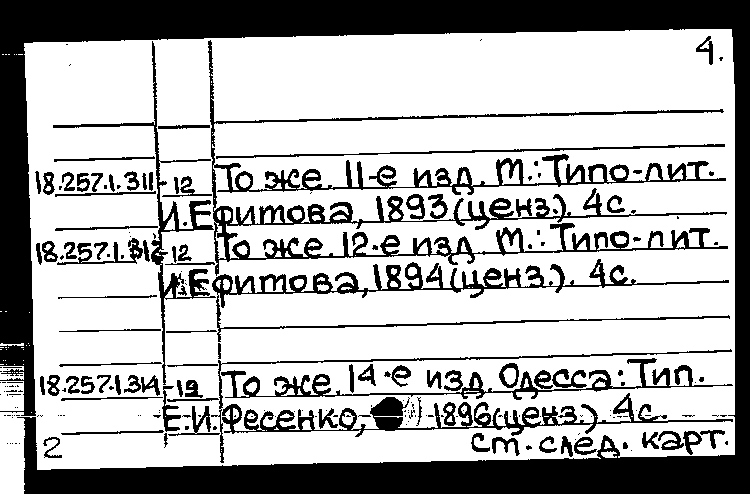 4.
18.257.1.311 -12 То же. 11-е изд. М.: Типо-лит.
И. Ефитова, 1893 (ценз.). 4с.
18.257.1.312 -12 То же. 12-е изд. М.: Типо-лит.
И. Ефитова, 1894 (ценз.). 4с.
18.257.1.314 -19 То же. 14-е изд. Одесса: Тип.
Е.И. Фесенко, 1896 (ценз.). 4с.
2 ст. след. карт.